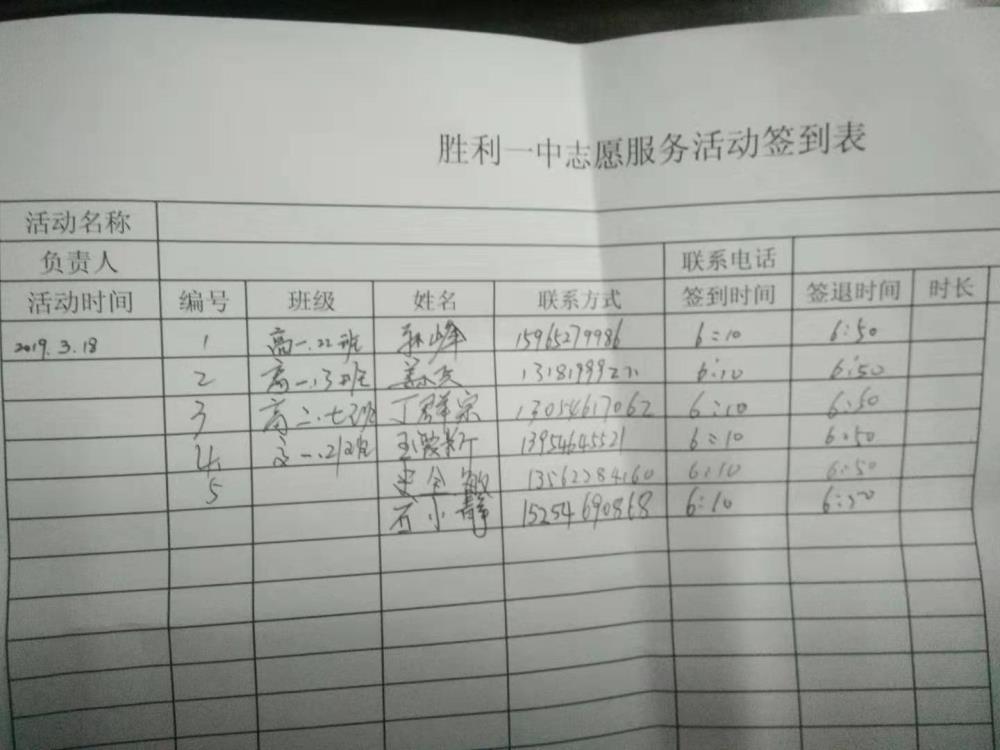 胜利一中志愿服务活动签到表
活动名称
负责人 联系电话
活动时间 编号 班级 姓名 联系方式 签到时间 签退时间 时长
2019.3.18 1 高一.22班 峰 15965279986 6:10 6:50
2 高一.13班 6:10 6:50
3 高二.七班 丁群宗 13054617062 6:10 6:50
4 高一.21班 13954645521 6:10 6:50
5 13562284160 6:10 6:50
石小静 15254690868 6:10 6:50